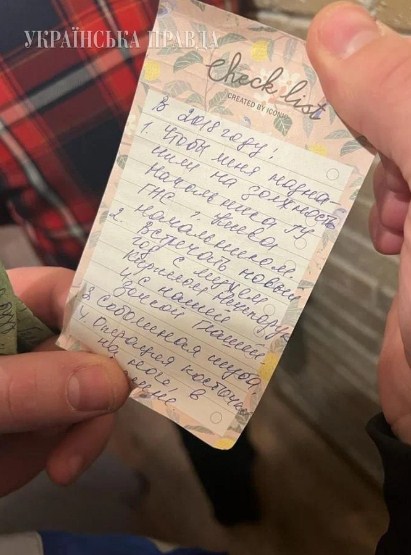 УКРАЇНСЬКА ПРАВДА
check list
CREATED BY
В 2018 году:
1. Чтобы меня назна-
чили на должность
Начальника ГУ
ГНС г. Киева
2. Начальником
Встречать новый
год с мужем
Кириллом
и с нашей
дочкой Дашей
3. Соболиная шуба
4. Операция косточки
на ноге в